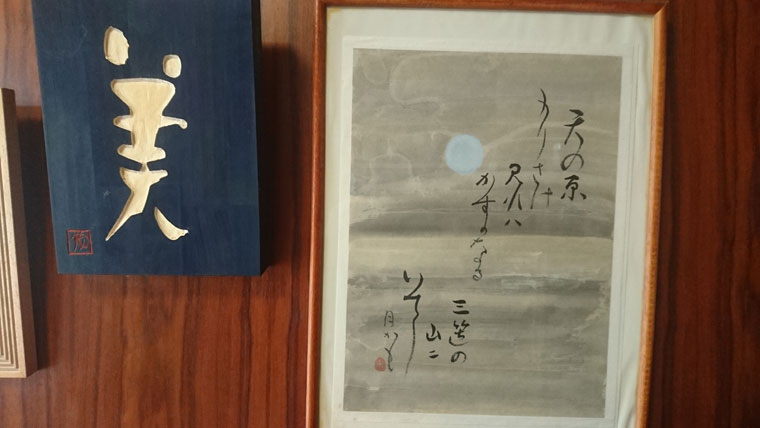 美
天の原
ふりさけ
見れハ
かすかなる
三笠の
山二
いてし
月かも